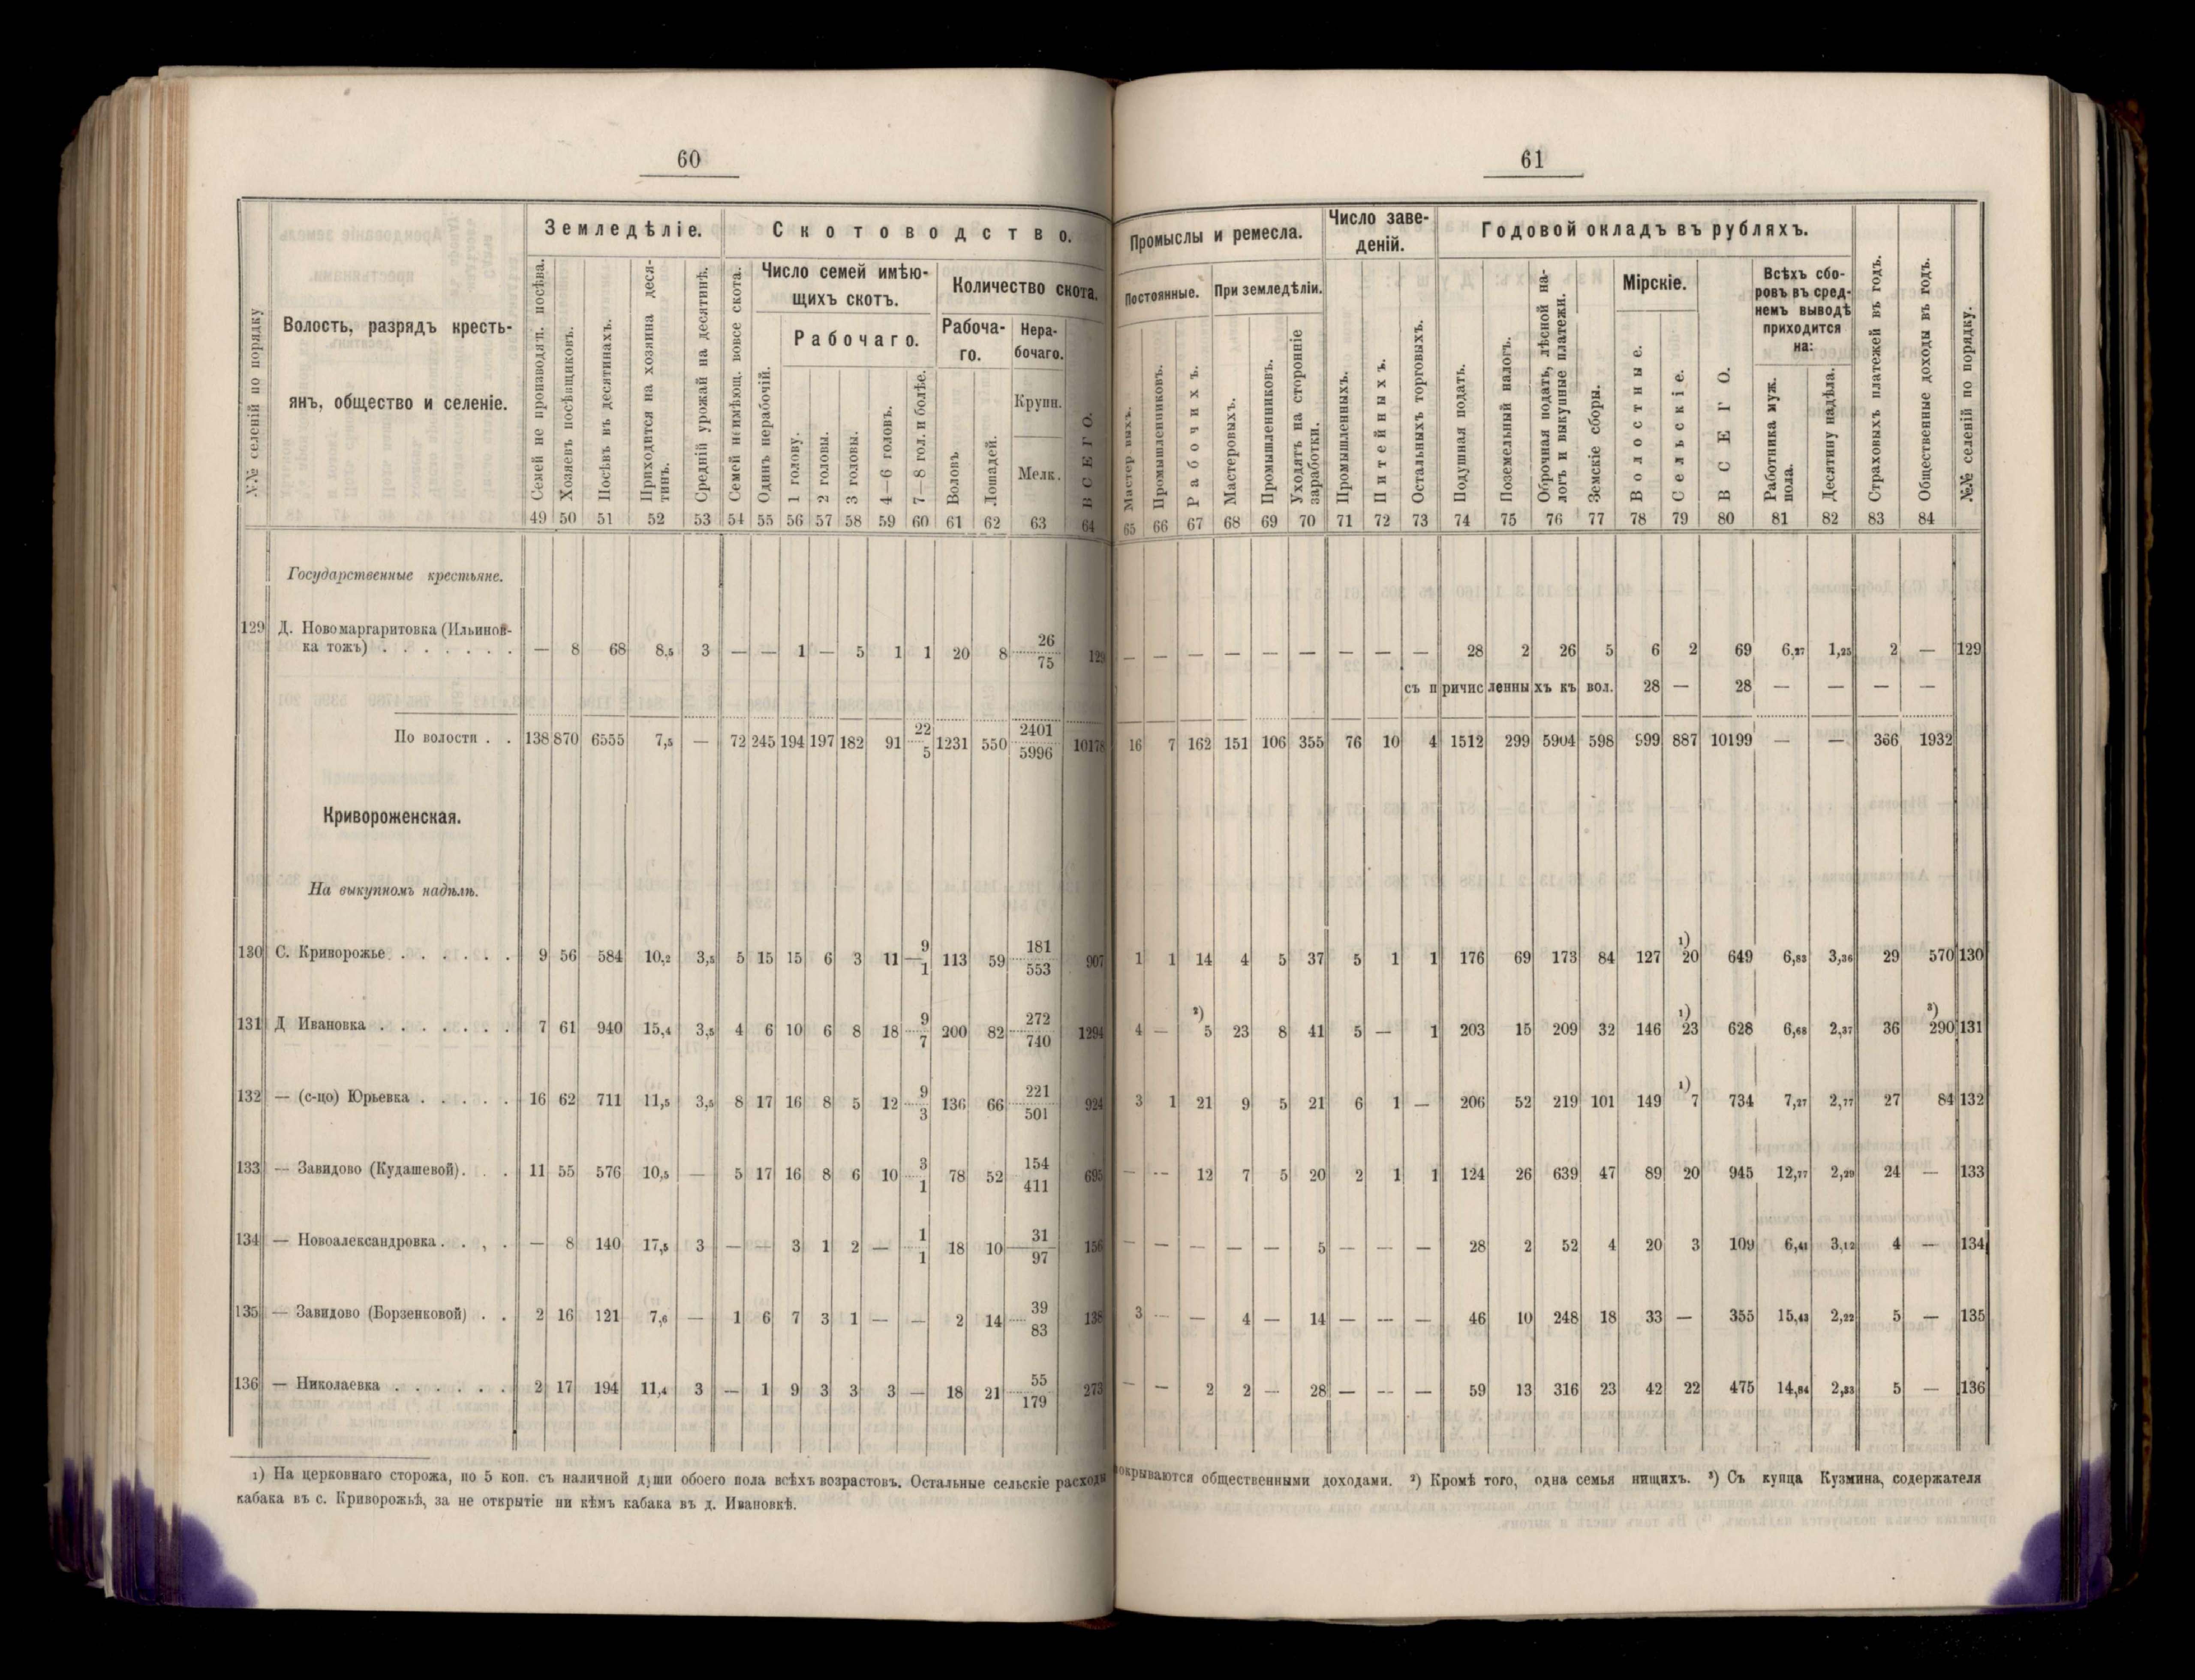 60
61
Земледѣліе.
Скотоводство.
Промыслы и ремесла.
Число заве-
деній.
Годовой окладъ въ рубляхъ.
№№ селеній по порядку
Волость, разрядъ кресть-
янъ, общество и селеніе.
Число семей имѣю-
щихъ скотъ.
Количество скота.
Постоянные.
При земледѣліи.
Мірскіе.
Всѣхъ сбо-
ровъ въ сред-
немъ выводѣ
приходится
на:
Рабочаго.
Рабоча-
го.
Нера-
бочаго.
Крупн.
Мелк.
Семей не производящ. посѣва.
Хозяевъ посѣвщиковъ.
Посѣвъ въ десятинахъ.
Приходится на хозяина деся-
тинъ.
Средній урожай на десятинѣ.
Семей неимѣющ. вовсе скота.
Одинъ нерабочій.
1 голову.
2 головы.
3 головы.
4—6 головъ.
7—8 гол. и болѣе.
Воловъ
Лошадей.
ВСЕГО.
Промышленниковъ.
Рабочихъ.
Мастеровыхъ.
Промышленниковъ.
Уходятъ на сторонніе
заработки.
Промышленныхъ.
Питейныхъ.
Остальныхъ торговыхъ.
Подушная подать.
Поземельный налогъ.
Оброчная подать, лѣсной на-
логъ и выкупные платежи.
Земскіе сборы.
Волостные.
Сельскіе.
ВСЕГО.
Работника муж.
пола.
Десятину надѣла.
Страховыхъ платежей въ годъ.
Общественные доходы въ годъ.
№№ селеній по порядку.
49 50 51 52 53 54 55 56 57 58 59 60 61 62 63 64 65 66 67 68 69 70 71 72 73 74 75 76 77 78 79 80 81 82 83 84
Государственные крестьяне.
129 Д. Новомаргаритовка (Ильинов-
ка тожъ) . . . . . . . — 8 68 8,5 3 — — 1 — 5 1 1 20 8 26/75 129 — — — — — — — — — 28 2 26 5 6 2 69 6,27 1,25 2 — 129
съ причисленныхъ къ вол. 28 — 28 — — — —
По волости . . 138 870 6555 7,5 — 72 245 194 197 182 91 22/5 1231 550 2401/5996 10178 16 7 162 151 106 355 76 10 4 1512 299 5904 598 999 887 10199 — — 366 1932
Кривороженская.
На выкупномъ надѣлѣ.
130 С. Криворожье . . . . . . 9 56 584 10,2 3,5 5 15 15 6 3 11 9/1 113 59 181/553 907 1 1 14 4 5 37 5 1 1 176 69 173 84 127 ¹)20 649 6,83 3,36 29 570 130
131 Д Ивановка . . . . . . . 7 61 940 15,4 3,5 4 6 10 6 8 18 9/7 200 82 272/740 1294 4 — ²)5 23 8 41 5 — 1 203 15 209 32 146 ¹)23 628 6,68 2,37 36 ³)290 131
132 — (с-цо) Юрьевка . . . . . 16 62 711 11,5 3,5 8 17 16 8 5 12 9/3 136 66 221/501 924 3 1 21 9 5 21 6 1 — 206 52 219 101 149 ¹)7 734 7,27 2,77 27 84 132
133 — Завидово (Кудашевой). . . 11 55 576 10,5 — 5 17 16 8 6 10 3/1 78 52 154/411 695 — — 12 7 5 20 2 1 1 124 26 639 47 89 20 945 12,77 2,29 24 — 133
134 — Новоалександровка . . , . — 8 140 17,5 3 — — 3 1 2 — 1/1 18 10 31/97 156 — — — — — 5 — — — 28 2 52 4 20 3 109 6,41 3,12 4 — 134
135 — Завидово (Борзенковой) . . 2 16 121 7,6 — 1 6 7 3 1 — — 2 14 39/83 138 3 — — 4 — 14 — — — 46 10 248 18 33 — 355 15,43 2,22 5 — 135
136 — Николаевка . . . . . . 2 17 194 11,4 3 — 1 9 3 3 3 — 18 21 55/179 273 — — 2 2 — 28 — — — 59 13 316 23 42 22 475 14,84 2,33 5 — 136
¹) На церковнаго сторожа, по 5 коп. съ наличной души обоего пола всѣхъ возрастовъ. Остальные сельскіе расходы покрываются общественными доходами. ²) Кромѣ того, одна семья нищихъ. ³) Съ купца Кузмина, содержателя
кабака въ с. Криворожьѣ, за не открытіе ни кѣмъ кабака въ д. Ивановкѣ.